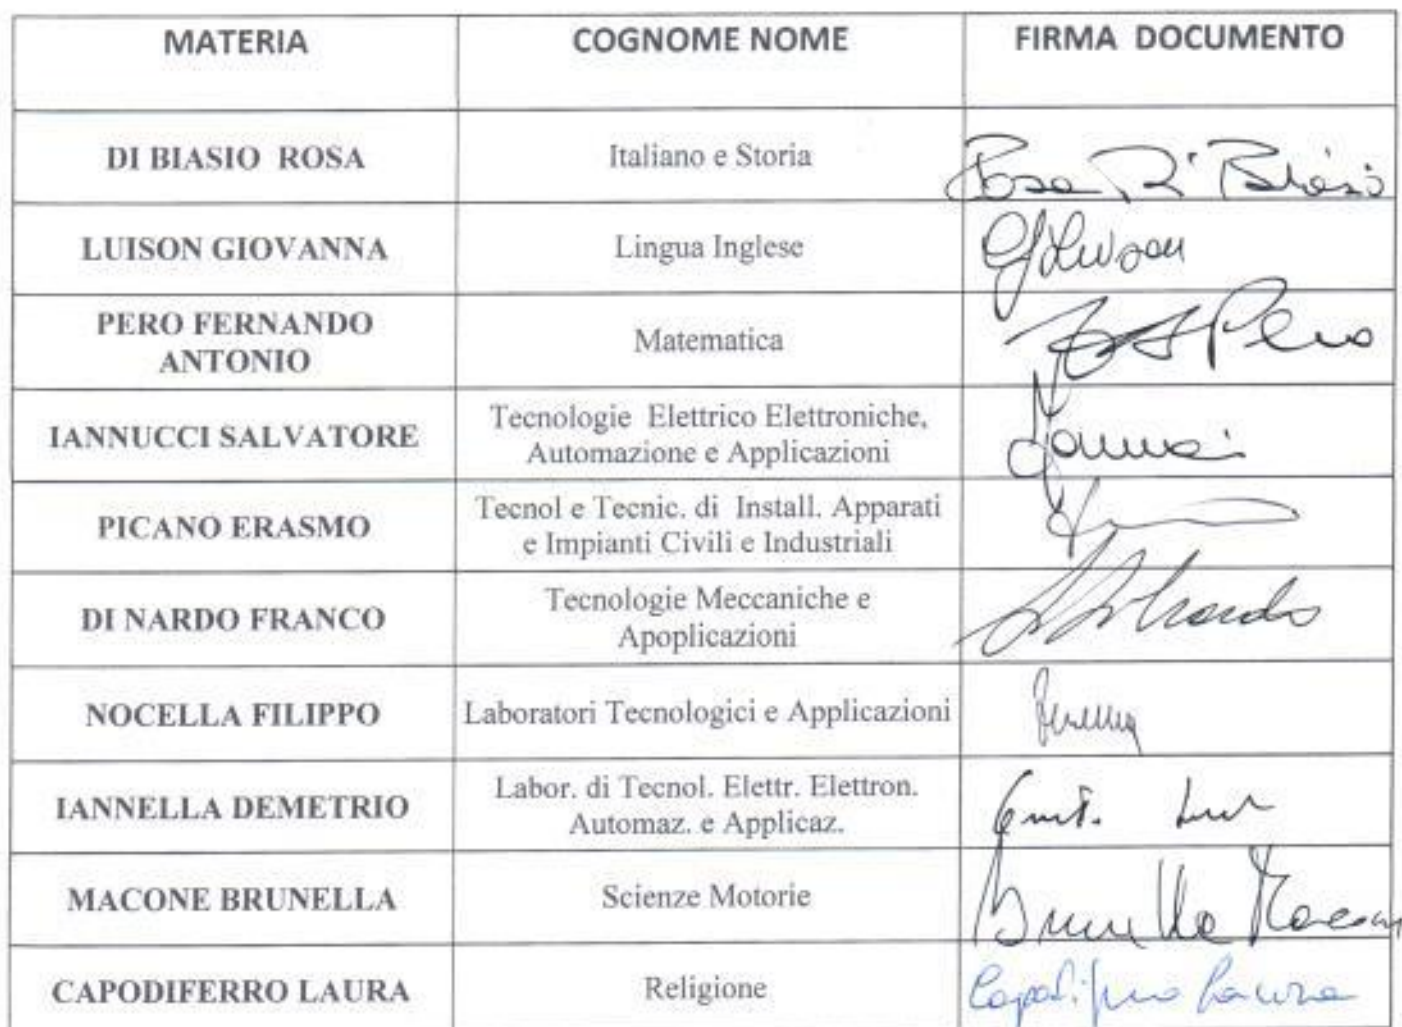 MATERIA COGNOME NOME FIRMA DOCUMENTO
DI BIASIO ROSA Italiano e Storia Rosa Di Biasio
LUISON GIOVANNA Lingua Inglese G Luison
PERO FERNANDO
ANTONIO
Matematica Pero
IANNUCCI SALVATORE
Tecnologie Elettrico Elettroniche,
Automazione e Applicazioni
Iannucci
PICANO ERASMO
Tecnol e Tecnic. di Install. Apparati
e Impianti Civili e Industriali
DI NARDO FRANCO
Tecnologie Meccaniche e
Apoplicazioni
NOCELLA FILIPPO Laboratori Tecnologici e Applicazioni
IANNELLA DEMETRIO
Labor. di Tecnol. Elettr. Elettron.
Automaz. e Applicaz.
MACONE BRUNELLA Scienze Motorie Brunella Macone
CAPODIFERRO LAURA Religione Capodiferro Laura